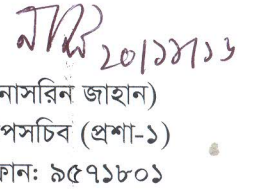 ২০/১১/১৬
নাসরিন জাহান)
পসচিব (প্রশা-১)
ফান: ৯৫৭১৮০১